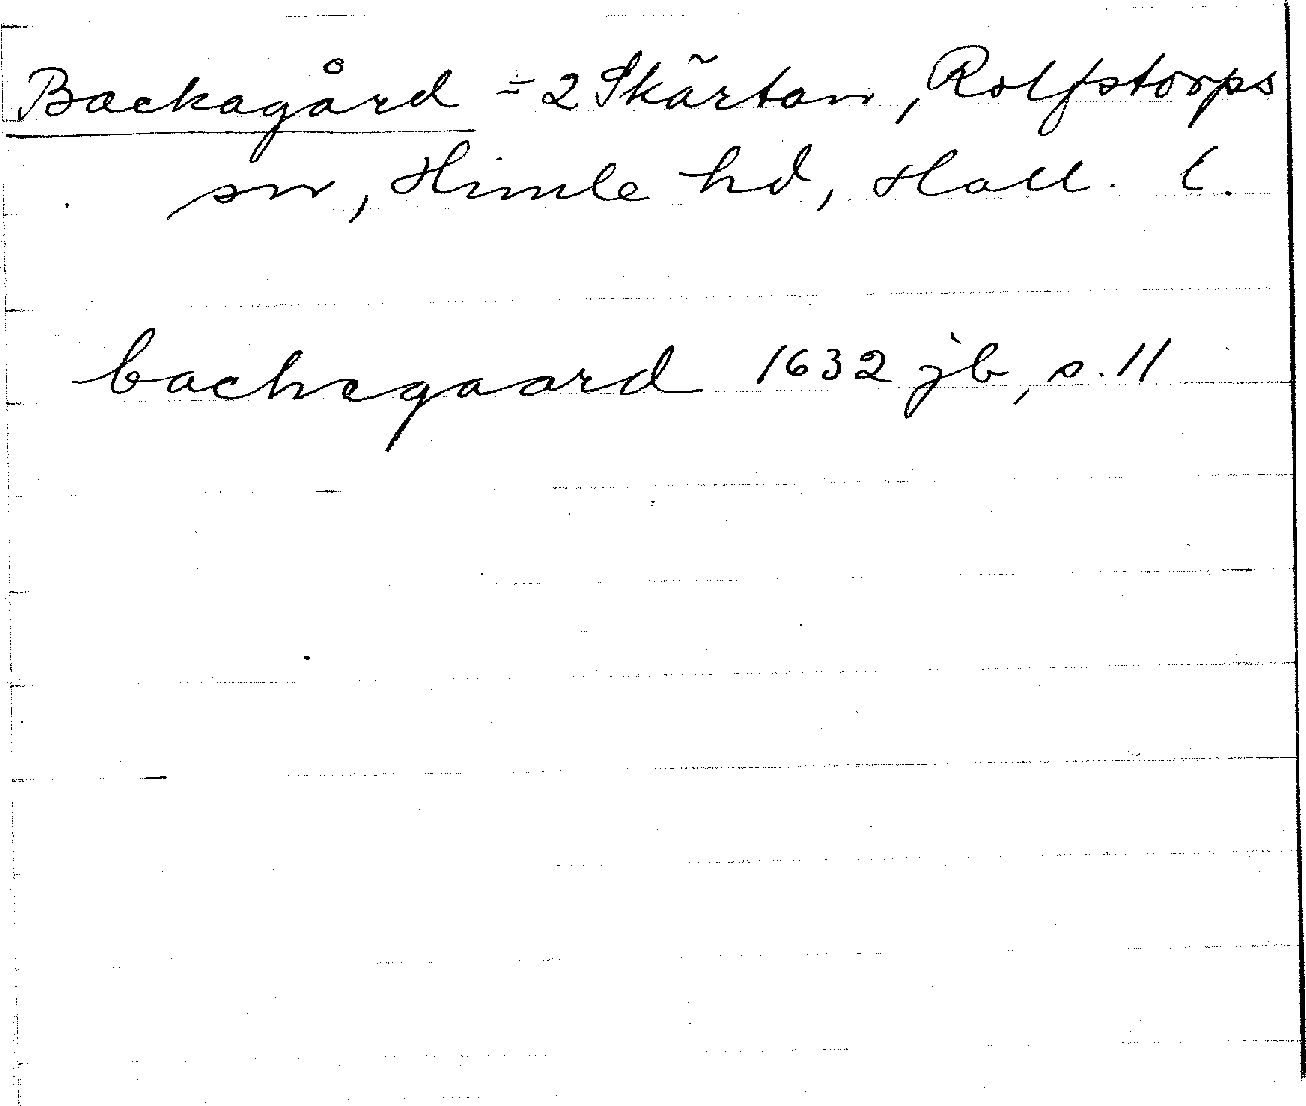 Backagård = 2 Skärtan, Rolfstorps
sn, Himle hd, Hall. l.
backegaard 1632 jb, s. 11